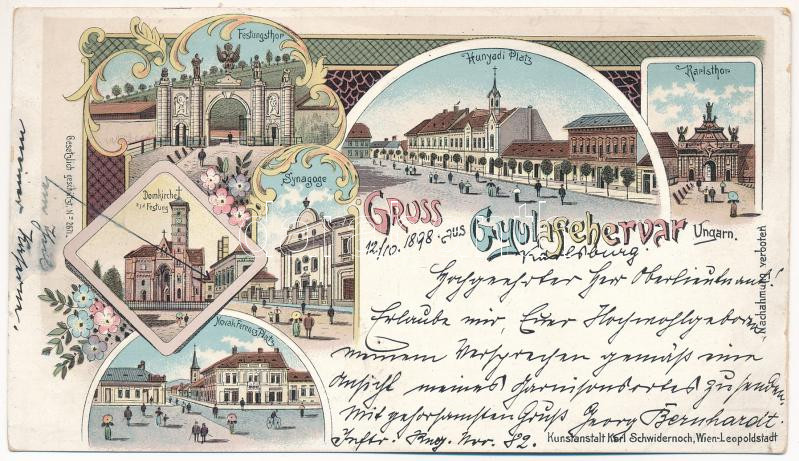 Festungsthor
Hunyadi Platz
Karlsthor
Gesetzlich geschützt No 2611.
Domkirche
i/d Festung
Synagoge
Gruss
aus
Gyulafehervar
Ungarn.
12./10. 1898.
Karlsburg
Hochgeehrter Herr Oberlieutnant!
Erlaube mir, Euer Hochwohlgeboren
meinem Versprechen gemäß eine
Ansicht meines Garnisonsortes zu senden.
Mit gehorsamsten Gruß Georg Bernhardt.
Inftr. Reg. Nro. 82.
Novak Ferencz Platz
Nachahmung verboten
Kunstanstalt Karl Schwidernoch, Wien-Leopoldstadt
meiner